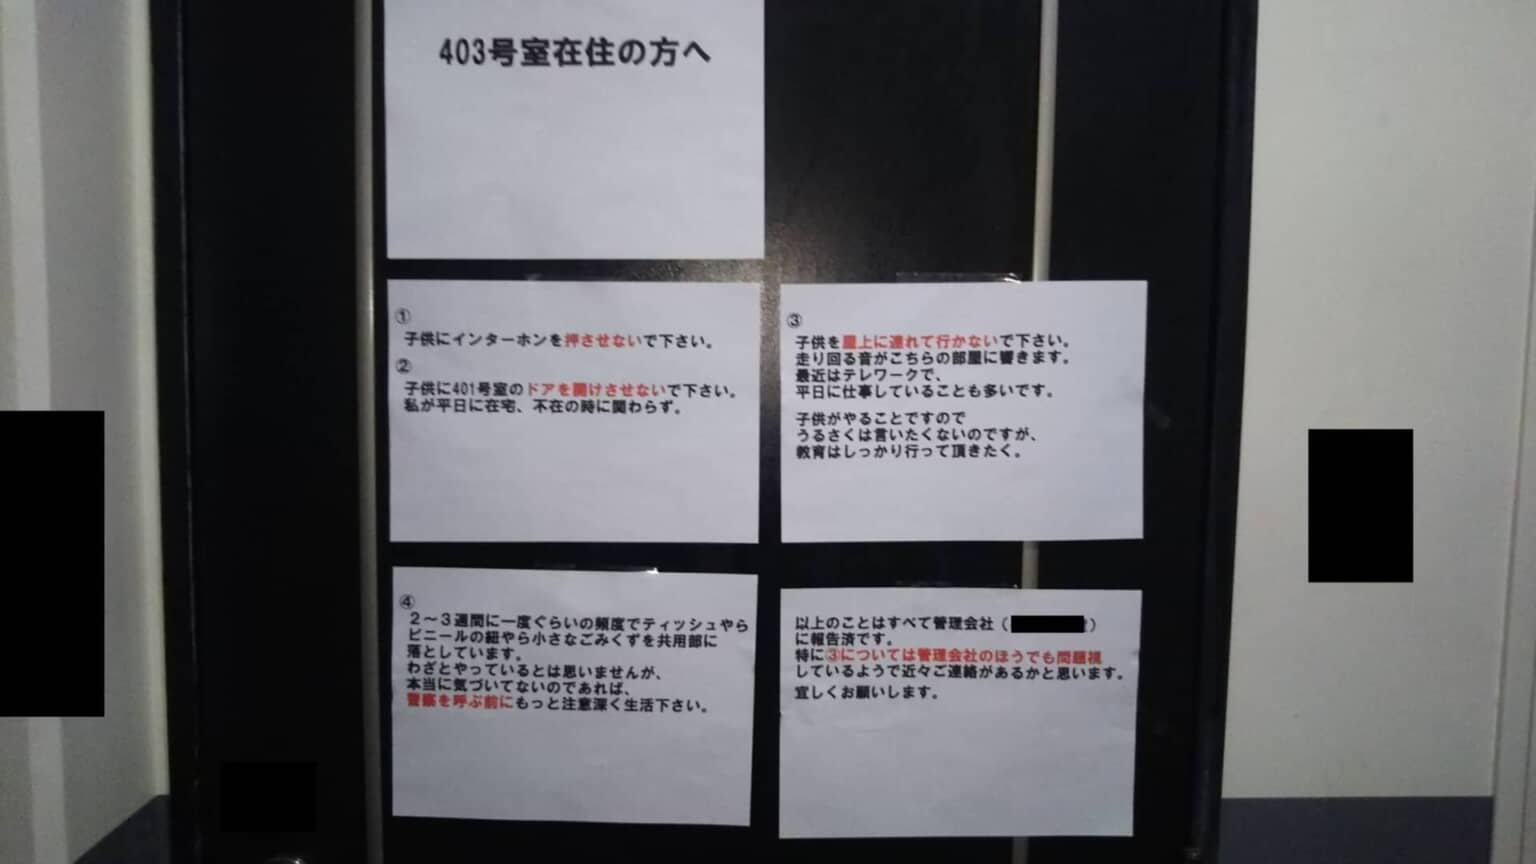 403号室在住の方へ
①
子供にインターホンを押させないで下さい。
②
子供に401号室のドアを開けさせないで下さい。
私が平日に在宅、不在の時に関わらず。
③
子供を屋上に連れて行かないで下さい。
走り回る音がこちらの部屋に響きます。
最近はテレワークで、
平日に仕事していることも多いです。
子供がやることですので
うるさくは言いたくないのですが、
教育はしっかり行って頂きたく。
④
２～３週間に一度ぐらいの頻度でティッシュやら
ビニールの紐やら小さなごみくずを共用部に
落としています。
わざとやっているとは思いませんが、
本当に気づいてないのであれば、
警察を呼ぶ前にもっと注意深く生活下さい。
以上のことはすべて管理会社（ ）
に報告済です。
特に③については管理会社のほうでも問題視
しているようで近々ご連絡があるかと思います。
宜しくお願いします。